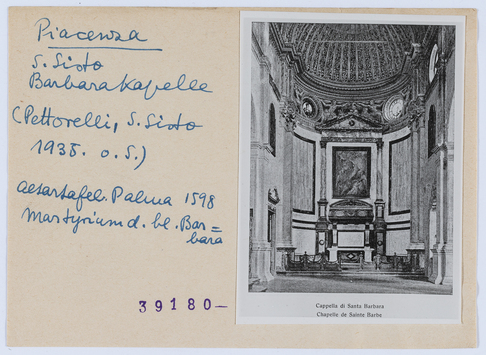 Piacenza
S. Sisto
Barbarakapelle
(Pettorelli, S. Sisto
1935. o. S.)
Palma 1598
Martyrium d. hl. Bar=
bara
39180-
Cappella di Santa Barbara
Chapelle de Sainte Barbe